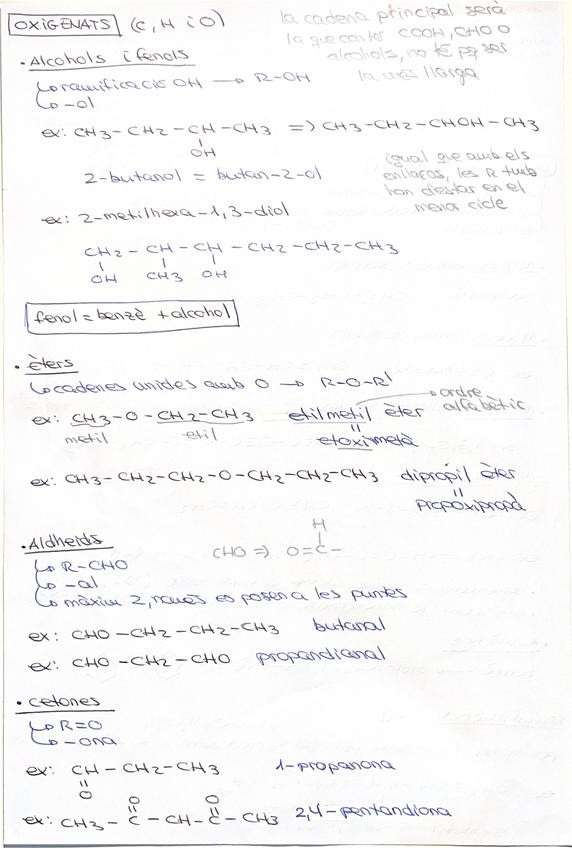 OXIGENATS (C, H i O)
la cadena principal serà
la que conté COOH, CHO O
alcohols, no té pq ser
la més llarga
• Alcohols i fenols
↳ ramificació OH → R-OH
↳ -ol
ex: CH3 - CH2 - CH - CH3 => CH3 - CH2 - CHOH - CH3
OH
2-butanol = butan-2-ol
igual que amb els
enllaços, les R tmb
han d'estar en el
menor
ex: 2-metilhexa-1,3-diol
CH2 - CH - CH - CH2 - CH2 - CH3
OH CH3 OH
fenol = benzè + alcohol
• èters
↳ cadenes unides amb O → R-O-R'
ordre
alfabètic
ex: CH3 - O - CH2 - CH3 etilmetil èter
metil etil =
etoximetà
ex: CH3 - CH2 - CH2 - O - CH2 - CH2 - CH3 dipropil èter
=
propoxipropà
• Aldheids
H
CHO => O=C-
↳ R-CHO
↳ -al
↳ màxim 2, només es posen a les puntes
ex: CHO - CH2 - CH2 - CH3 butanal
ex: CHO - CH2 - CHO propandianal
• cetones
↳ R=O
↳ -ona
ex: CH - CH2 - CH3 1-propanona
O
O O
ex: CH3 - C - CH - C - CH3 2,4-pentandiona